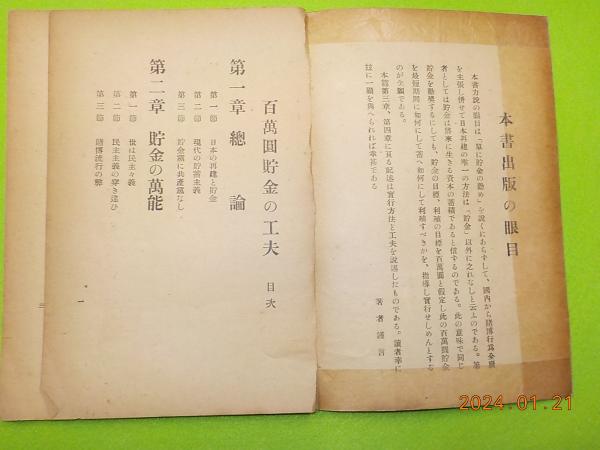 本書出版の眼目
本書力説の眼目は「單に貯金の勸め」を說くにあらずして、國內から賭博行爲全廢
を主張し併せて日本再建の唯一の方法は「貯金」以外に之れなしと云ふのである。筆
者としては貯金は將來に生きる資本の蓄積であると信ずるのである。此の意味で同じ
貯金を勸奬するにしても、貯金の目標、利殖の目標を百萬圓と假定し此の百萬圓貯金
を最短期間に如何にして蓄へ、如何にして利殖すべきかを、指導し實行せしめんとする
のが念願である。
本篇第三章、第四章に亘る記述は實行方法と工夫を說述したものである。讀者幸に
玆に一顧を與へられれば幸甚である
著者謹言
百萬圓貯金の工夫 目次
第一章 總論
第一節 日本の再建と貯金
第二節 現代の貯蓄主義
第三節 貯金黨に共產黨なし
第二章 貯金の萬能
第一節 世は民主々義
第二節 民主主義の穿き違ひ
第三節 賭博流行の弊
一
三
2024.01.21